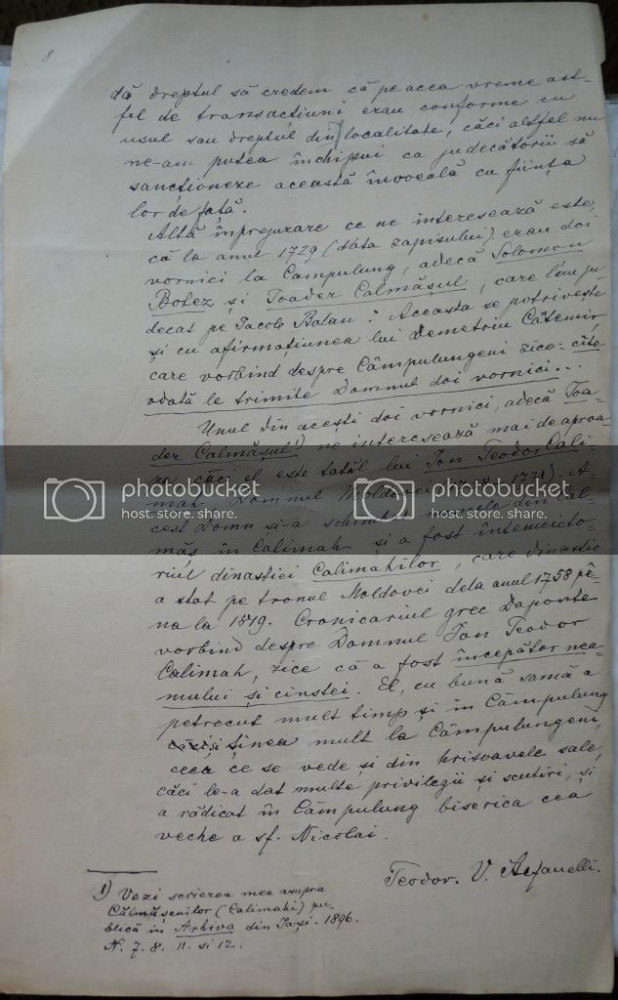 8
dă dreptul să credem că pe acea vreme ast-
fel de transacțiuni erau conforme cu
usul sau dreptul din localitate, căci altfel nu
ne-am putea închipui ca judecătorii să
sancționeze această învoeală cu ființa
lor de față.
Altă împregiurare ce ne interesează este,
că la anul 1729 (data zapisului) erau doi
vornici la Câmpulung, adecă Solomon
Botez și Toader Calmășul, care l-au ju
decat pe Iacob Balan. Aceasta se potrivește
și cu afirmațiunea lui Demetriu Cătemir,
care vorbind despre Câmpulungeni zice: cîte
odată le trimite Domnul doi vornici...
Unul din acești doi vornici, adecă Toa-
der Calmășul 1) ne interesează mai de aproa-
căci el este tatăl lui Ion Teodor Cali-
mah Domnul Moldovei A-
cest Domn și-a schimbat numele din Cal-
măș în Calimah și a fost întemeieto-
riul dinastiei Calimahilor, care dinastie
a stat pe tronul Moldovei dela anul 1758 pê-
na la 1819. Cronicariul grec Daponte
vorbind despre Domnul Ion Teodor
Calimah, zice că a fost începător nea-
mului și cinstei. El, cu bună samă a
petrecut mult timp și în Câmpulung
și ținea mult la Câmpulungeni,
ceea ce se vede și din hrisoavele sale,
căci le-a dat multe privilegii și scutiri, și
a rădicat în Câmpulung biserica cea
veche a sf. Nicolai.
Teodor. V. Ștefanelli.
1) Vezi scrierea mea asupra
Călmășenilor (Calimahi) pu-
blică în Arhiva din Iași. 1896.
N. 7. 8. 11. si 12.
photobucket
host. store. share.
photobucket
host. store. share.